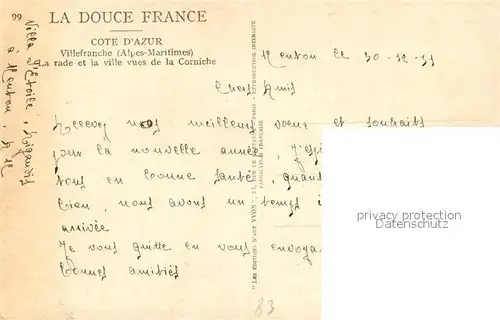 99 LA DOUCE FRANCE
COTE D'AZUR
Villefranche (Alpes-Maritimes)
La rade et la ville vues de la Corniche
Villa l'Etoile,
à Menton,
Menton le 30-12-
Chers Amis
Recevez nos meilleurs voeux et souhaits
pour la nouvelle année,
tous en bonne santé, quant
bien, nous avons un temps
arrivée
Je vous quitte en vous envoya
bonnes amitiés
83
LES EDITIONS D'ART YVON
PARIS - REPRODUCTION INTERDITE
FABRICATION FRANÇAISE
privacy protection
Datenschutz